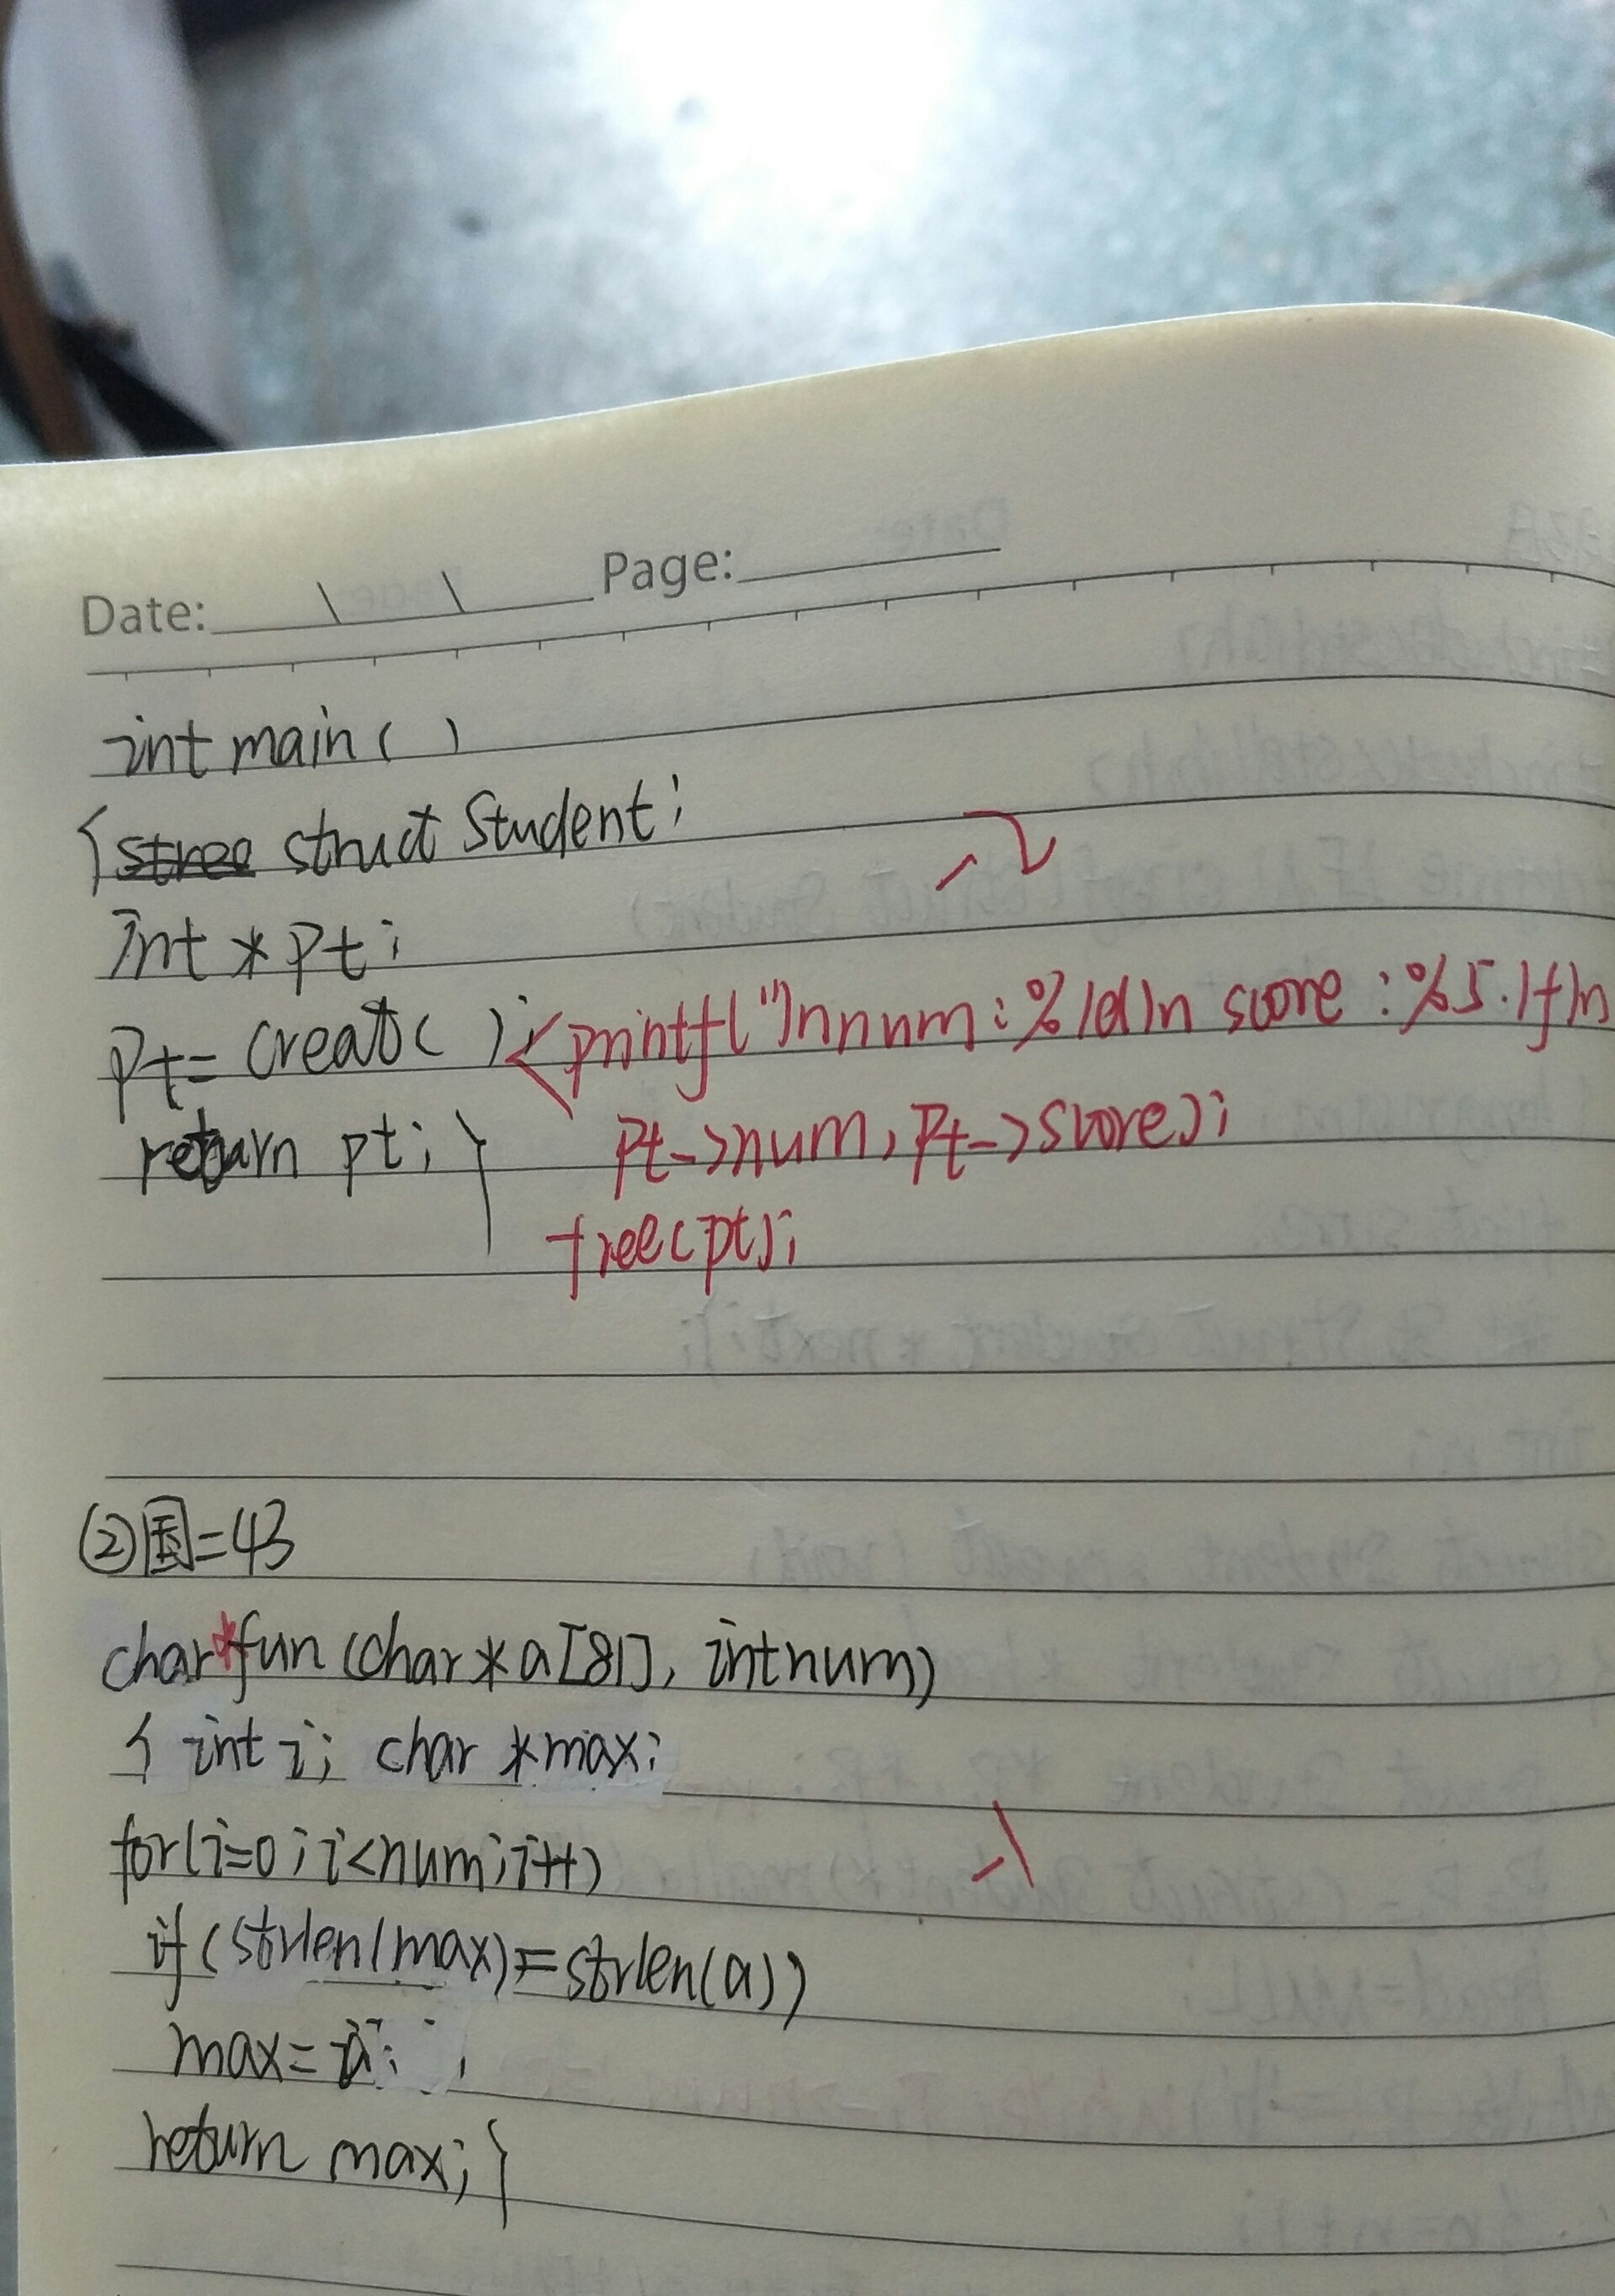 Date: \ \ Page:
int main( )
{ struct Student;
int *pt;
pt= creat( ); <printf("\nnnum:%ld\n score:%5.1f\n
return pt; } pt->num, pt->score);
free(pt);
②国=43
char*fun (char *a[81], int num)
{ int i; char *max;
for(i=0;i<num;i++)
if(strlen(max)=strlen(a))
max=a;
return max;}